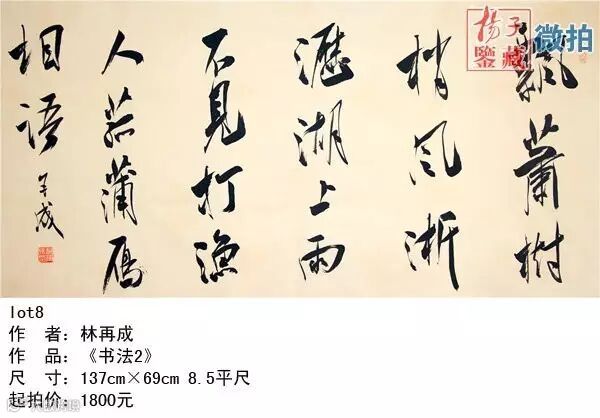 楊子
鑒藏
微拍
飄蕭樹
梢风淅
瀝湖上雨
不見打漁
人菰蒲雁
相語
再成
lot8
作 者：林再成
作 品：《书法2》
尺 寸：137cm×69cm 8.5平尺
起拍价：1800元